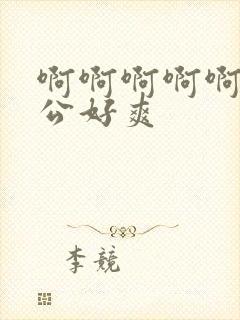 啊啊啊啊啊
公好爽
李競